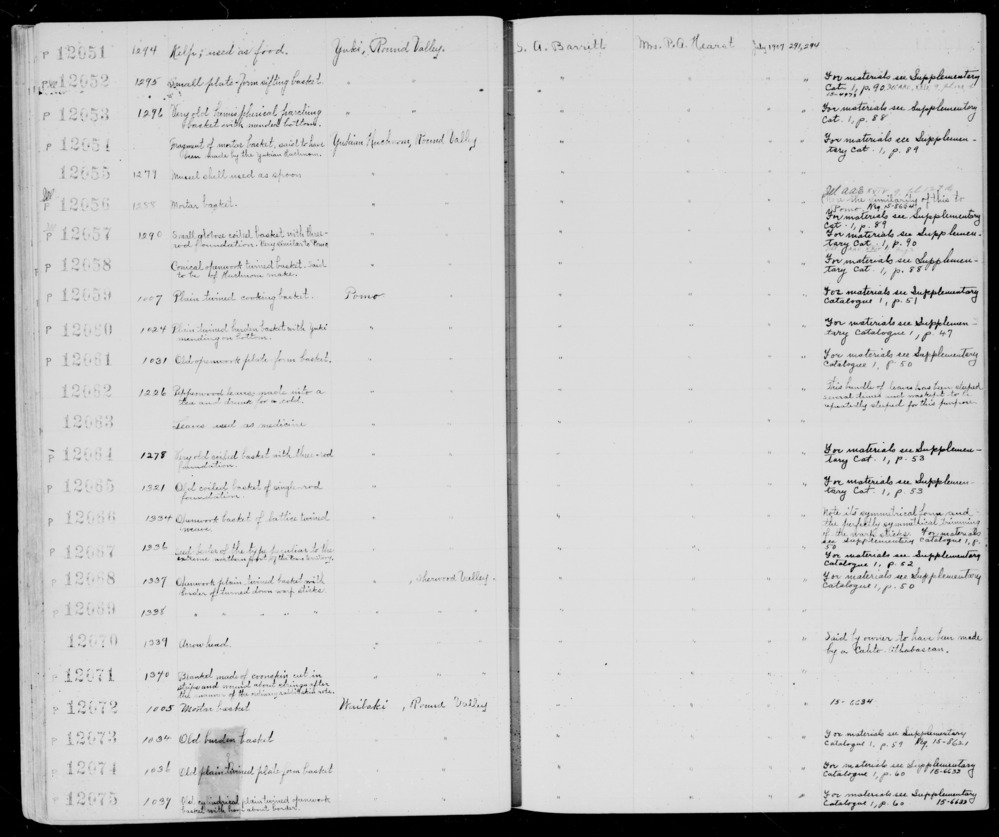 P 12051 1294 Kelp; used as food. Yuki, Round Valley. S. A. Barrett Mrs. P. A. Hearst July 1907 291,294
12052 1295 Small plate-form sifting basket. " " " " For materials see Supplementary
Cat. 1, p. 90
P 12053 1296 Very old hemispherical parching " " " " For materials see Supplementary
basket with mended bottom. Cat. 1, p. 88
P 12054 Fragment of mortar basket, said to have Yukian Huchnom, Round Valley " " For materials see Supplemen-
been made by the Yukian Huchnom. tary Cat. 1, p. 89
12055 1277 Mussel shell used as spoon " " "
P 12056 Mortar basket. " " "
the similarity of this to
Pomo. Neg. 15-
For materials see Supplementary
Cat. 1, p. 89
P 12057 1290 Small globose coiled basket with three- " " For materials see Supplemen-
rod foundation. Very similar to Pomo tary Cat. 1, p. 90
P 12058 Conical openwork twined basket. Said " " For materials see Supplemen-
to be of Huchnom make. tary Cat. 1, p. 88
P 12059 1007 Plain twined cooking basket. Pomo " " For materials see Supplementary
Catalogue 1, p. 51
P 12060 1024 Plain twined burden basket with Yuki " " For materials see Supplemen-
mending on bottom. tary Catalogue 1, p. 47
P 12061 1031 Old openwork plate-form basket. " " For materials see Supplementary
Catalogue 1, p. 50
12062 1226 Pepperwood leaves made into a " " This bundle of leaves has been steeped
tea and drunk for a cold. several times and was kept to be
repeatedly steeped for this purpose
12063 Leaves used as medicine " "
P 12064 1278 Very old coiled basket with three-rod " " For materials see Supplemen-
foundation. tary Cat. 1, p. 53
P 12065 1321 Old coiled basket of single-rod " " For materials see Supplemen-
foundation. tary Cat. 1, p. 53
P 12066 1334 Openwork basket of lattice twined " " Note its symmetrical form and
weave the perfectly symmetrical trimming
of the warp sticks. For materials
see supplementary catalogue 1, p.
50
P 12067 1336 Seed beater of the type peculiar to the " " For materials see Supplementary
extreme northern part of the Pomo territory. Catalogue 1, p. 52
P 12068 1337 Openwork plain twined basket with " , Sherwood Valley. " For materials see Supplementary
border of turned down warp sticks. Catalogue 1, p. 50
P 12069 1338 " " " " " "
12070 1339 Arrowhead. " " Said by owner to have been made
by a Cahto-Athabascan.
P 12071 1340 Blanket made of coonskin cut in " "
strips and wound about strings after
the manner of the ordinary rabbitskin robe.
P 12072 1005 Mortar basket Wailaki , Round Valley " 15-6634
P 12073 1034 Old burden basket " " " For materials see Supplementary
Catalogue 1, p. 59 Neg. 15-8621
P 12074 1036 Old plain twined plate form basket " " " For materials see Supplementary
Catalogue 1, p. 60 15-6633
P 12075 1037 Old cylindrical plain twined openwork " " " For materials see Supplementary
basket with hoop about border. Catalogue 1, p. 60 15-6633